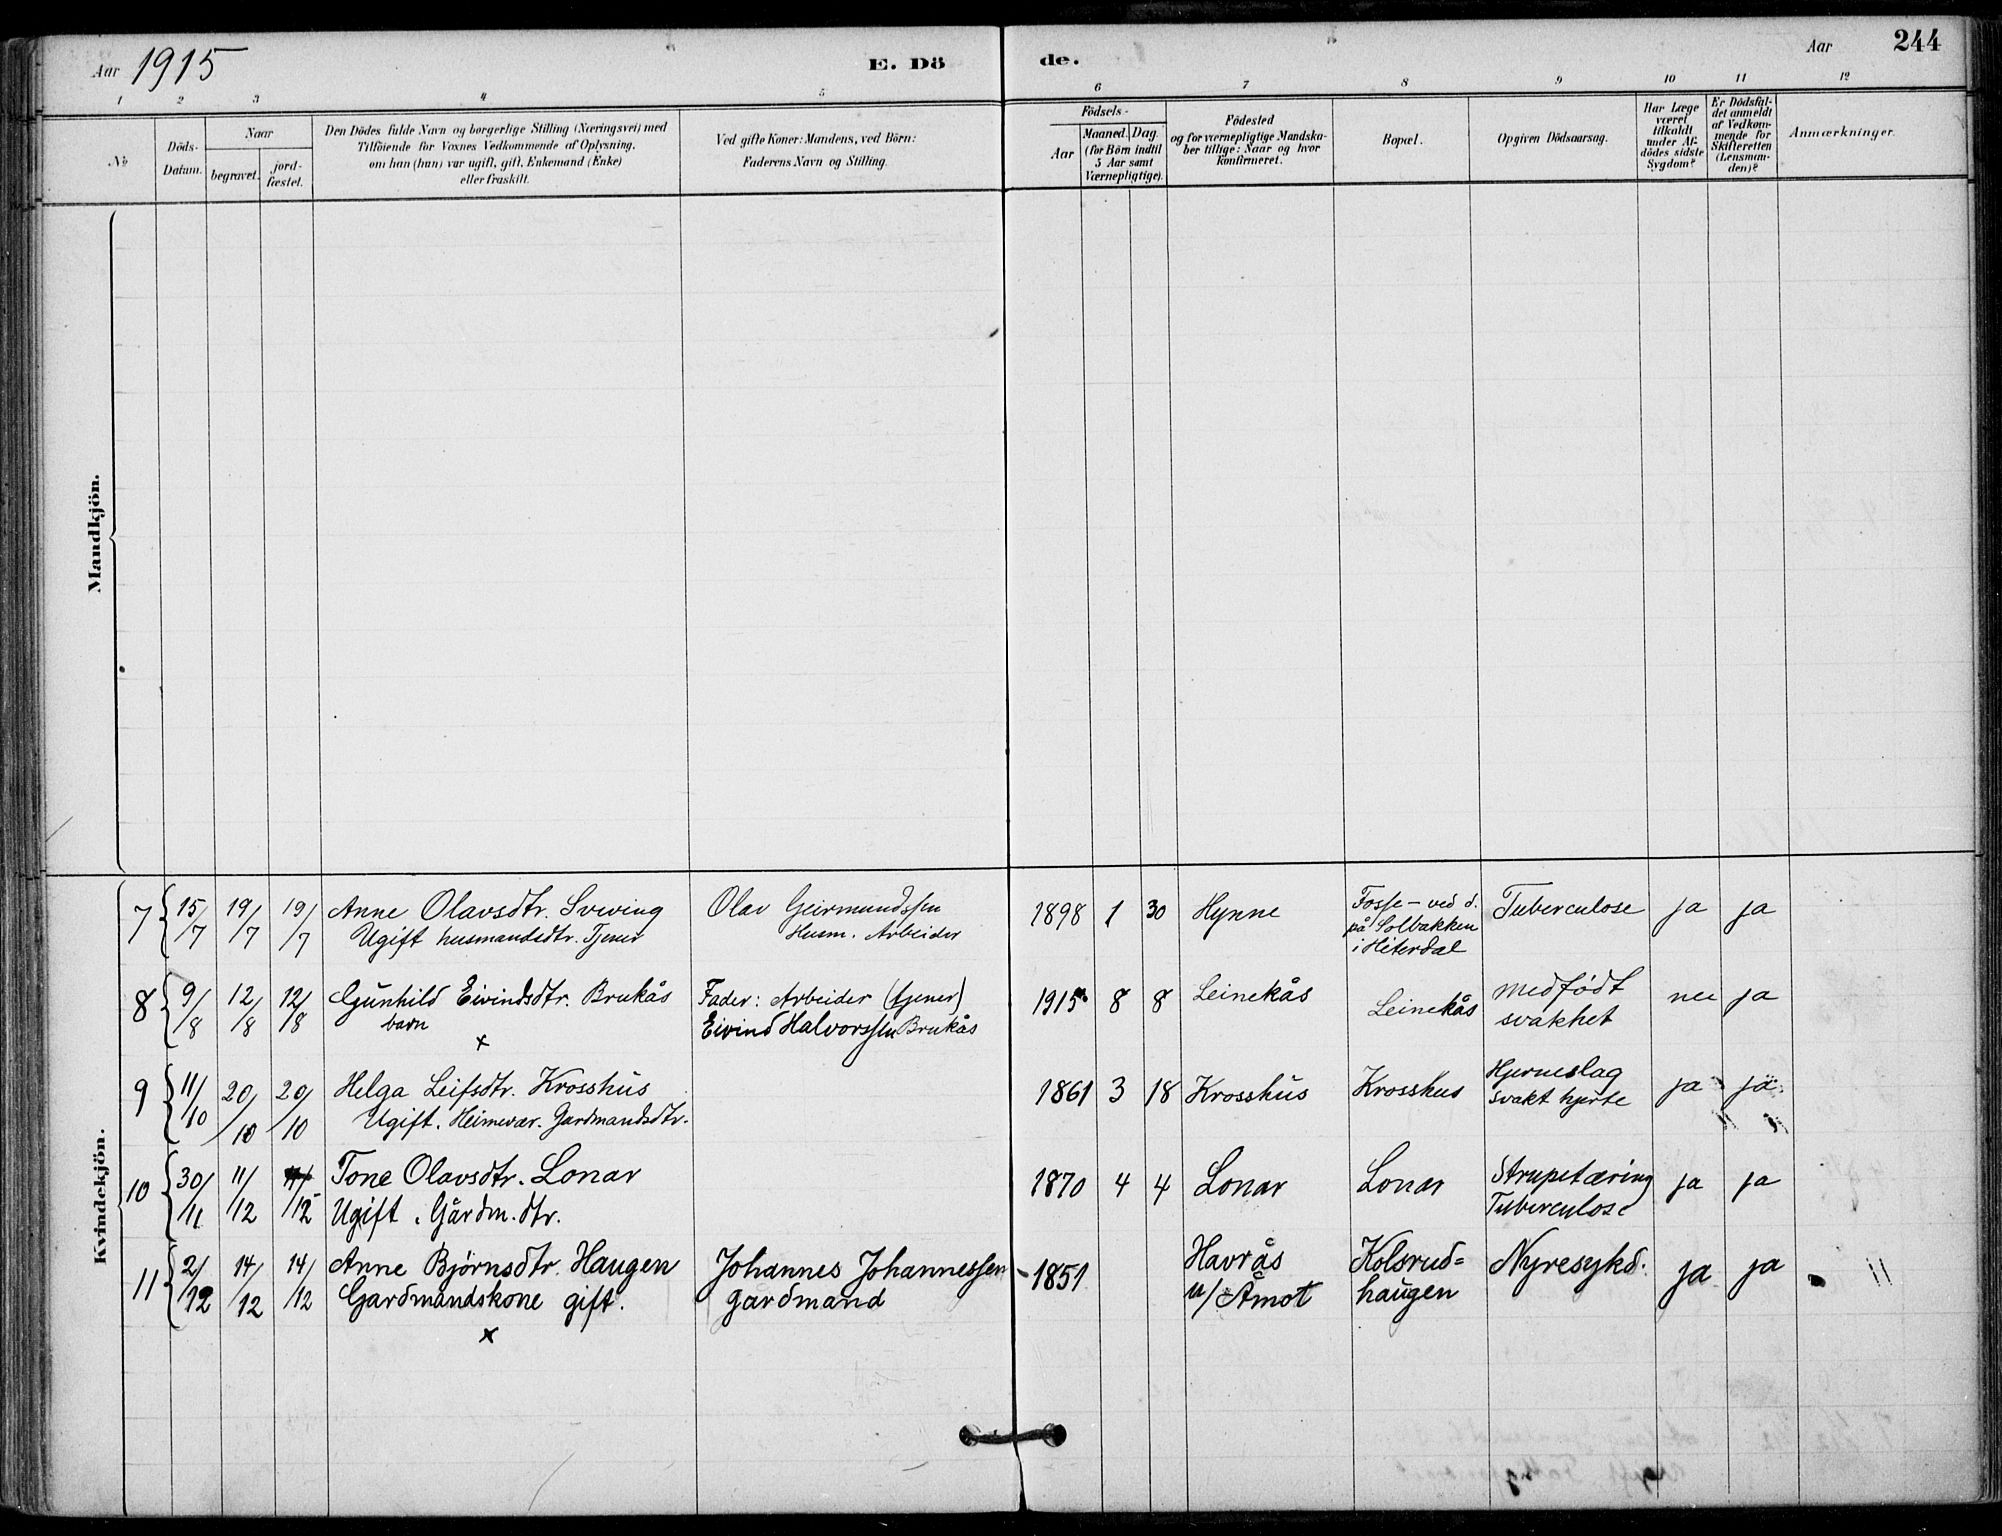 Aar 1915
E. Dö
de.
Aar
244
1 2 3 4 5 6 7 8 9 10 11 12
No
Döds-
Datum.
Naar
begravet.
jord-
fæstet.
Den Dödes fulde Navn og borgerlige Stilling (Næringsvei) med
Tilföiende for Voxnes Vedkommende af Oplysning,
om han (hun) var ugift, gift, Enkemand (Enke)
eller fraskilt.
Ved gifte Koner: Mandens, ved Börn:
Faderens Navn og Stilling.
Födsels-
Aar
Maaned. Dag.
(for Börn indtil
5 Aar samt
Værnepligtige).
Födested
og for værnepligtige Mandska-
ber tillige: Naar og hvor
konfirmeret.
Bopæl.
Opgiven Dödsaarsag.
Har Læge
været
tilkaldt
under Af-
dödes sidste
Sygdom?
Er Dödsfal-
det anmeldt
af Vedkom-
mende for
Skifteretten
(Lensman-
den)?
Anmærkninger.
Mandkjön.
Kvindekjön.
7 15/7 19/7 19/7
Anne Olavsdtr. Sveving
Ugift husmandsdtr. Tjener
Olav Geirmundssen
Husm. Arbeider
1898 1 30 Hynne
Fosse - ved d.
på Solbakken
i Hiterdal
Tuberculose ja ja
8 9/8 12/8 12/8
Gunhild Eivindsdtr. Brukås
barn
x
Fader: Arbeider (tjener)
Eivind Halvorssen Brukås
1915 8 8 Leinekås Leinekås
medfødt
svakhet
nei ja
9 11/10 20/10 20/10
Helga Leifsdtr. Krosshus
Ugift. Heimevær. Gardmandsdtr.
1861 3 18 Krosshus Krosshus
Hjerneslag
svakt hjerte
ja ja
10 30/11 11/12 11/12
Tone Olavsdtr. Lonar
Ugift. Gårdm. dtr.
1870 4 4 Lonar Lonar
Strupetæring
Tuberculose
ja ja
11 2/12 14/12 14/12
Anne Bjørnsdtr. Haugen
Gardmandskone gift.
x
Johannes Johannessen
gardmand
1851
Havrås
u/ Åmot
Kolsrud=
haugen
Nyresykd. ja ja